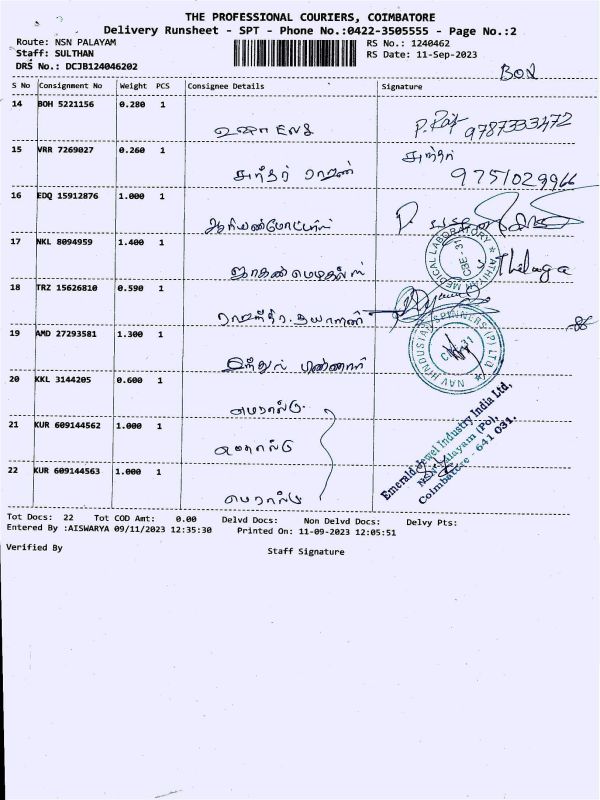 THE PROFESSIONAL COURIERS, COIMBATORE
Delivery Runsheet - SPT - Phone No.:0422-3505555 - Page No.:2
Route: NSN PALAYAM
RS No.: 1240462
Staff: SULTHAN
RS Date: 11-Sep-2023
DRS No.: DCJB124046202
S No Consignment No Weight PCS Consignee Details Signature
14 BOH 5221156 0.280 1
P. Raj 9787333472
15 VRR 7269027 0.260 1
சுந்தர்
9751029966
16 EDQ 15912876 1.000 1
17 NKL 8094959 1.400 1
MEDICAL LABORATORY
CBE-31
Thilaga
18 TRZ 15626810 0.590 1
19 AMD 27293581 1.300 1
NAV HINDUSTAN SPINNERS (P) LTD.
20 KKL 3144205 0.600 1
எமரால்டு
21 KUR 609144562 1.000 1
எமரால்டு
22 KUR 609144563 1.000 1
எமரால்டு
Emerald Jewel Industry India Ltd,
NSN Palayam (Po),
Coimbatore - 641 031.
Tot Docs: 22 Tot COD Amt: 0.00 Delvd Docs: Non Delvd Docs: Delvy Pts:
Entered By :AISWARYA 09/11/2023 12:35:30 Printed On: 11-09-2023 12:05:51
Verified By
Staff Signature